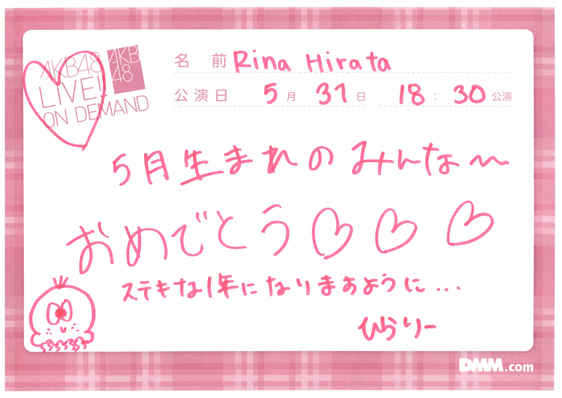 AKB48
LIVE!!
ON DEMAND
AKB
48
名 前 Rina Hirata
公演日 5月 31日 18:30公演
5月生まれのみんな〜
おめでとう♡♡♡
ステキな1年になりまあように...
ひらりー
DMM.com